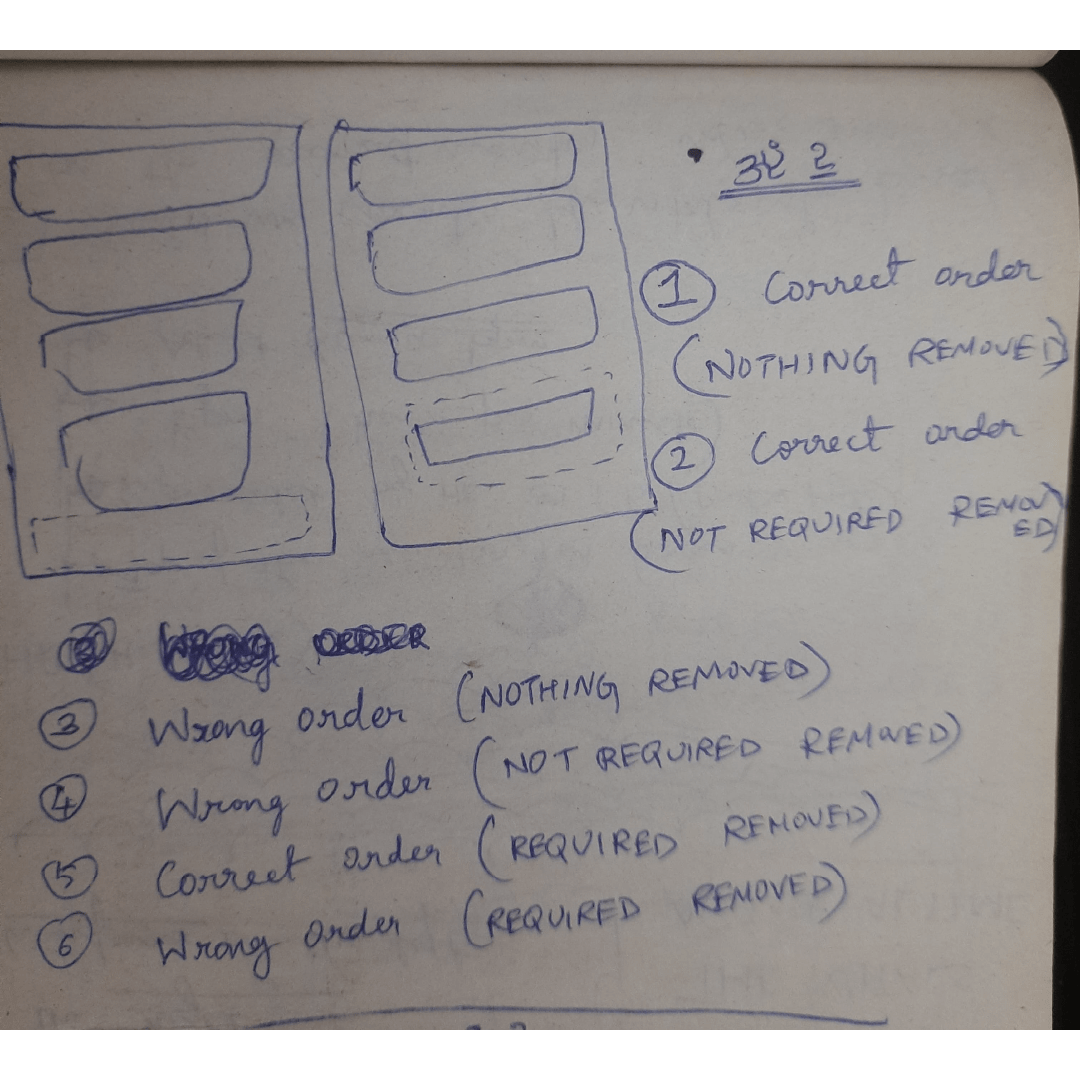 ① Correct order
(NOTHING REMOVED)
② Correct order
(NOT REQUIRED REMOVED)
③ Wrong order (NOTHING REMOVED)
④ Wrong order (NOT REQUIRED REMOVED)
⑤ Correct order (REQUIRED REMOVED)
⑥ Wrong order (REQUIRED REMOVED)